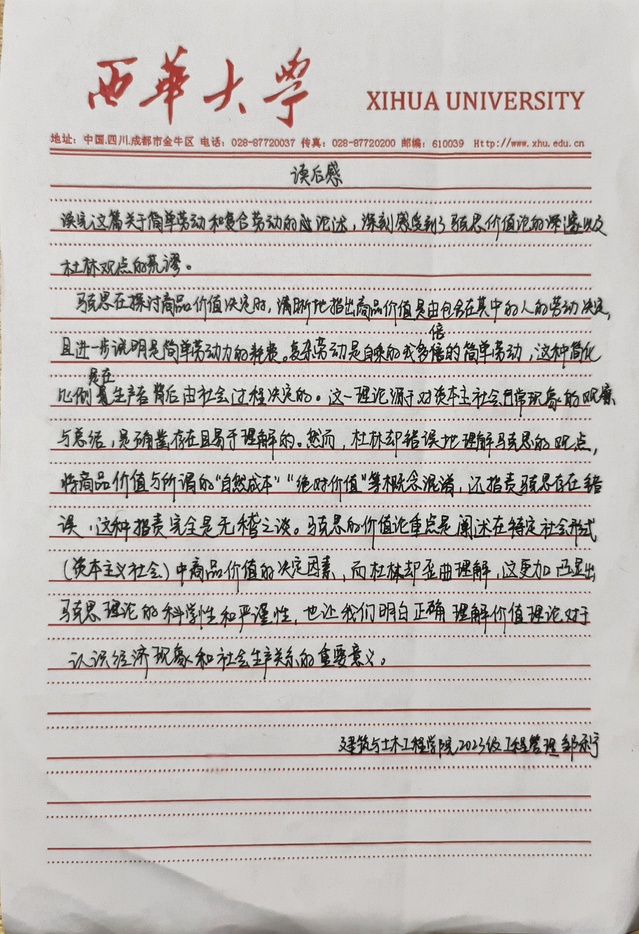 西华大学 XIHUA UNIVERSITY
地址: 中国.四川.成都市金牛区 电话: 028-87720037 传真: 028-87720200 邮编: 610039 Http://www.xhu.edu.cn
读后感
读完这篇关于简单劳动和复合劳动的论述，深刻感受到了马克思价值论的深邃以及
杜林观点的荒谬。
马克思在探讨商品价值决定时，清晰地指出商品价值是由包含在其中的人的劳动决定，
且进一步说明是简单劳动力的耗费。复杂劳动是自乘的或多倍的简单劳动，这种简化
比例是在生产者背后由社会过程决定的。这一理论源于对资本主社会日常现象的观察
与总结，是确凿存在且易于理解的。然而，杜林却错误地理解马克思的观点，
将商品价值与所谓的“自然成本”“绝对价值”等概念混淆，还指责马克思存在错
误，这种指责完全是无稽之谈。马克思的价值论重点是阐述在特定社会形式
（资本主义社会）中商品价值的决定因素，而杜林却歪曲理解，这更加凸显出
马克思理论的科学性和严谨性，也让我们明白正确理解价值理论对于
认识经济现象和社会生产关系的重要意义。
建筑与土木工程学院2023级工程管理 邹